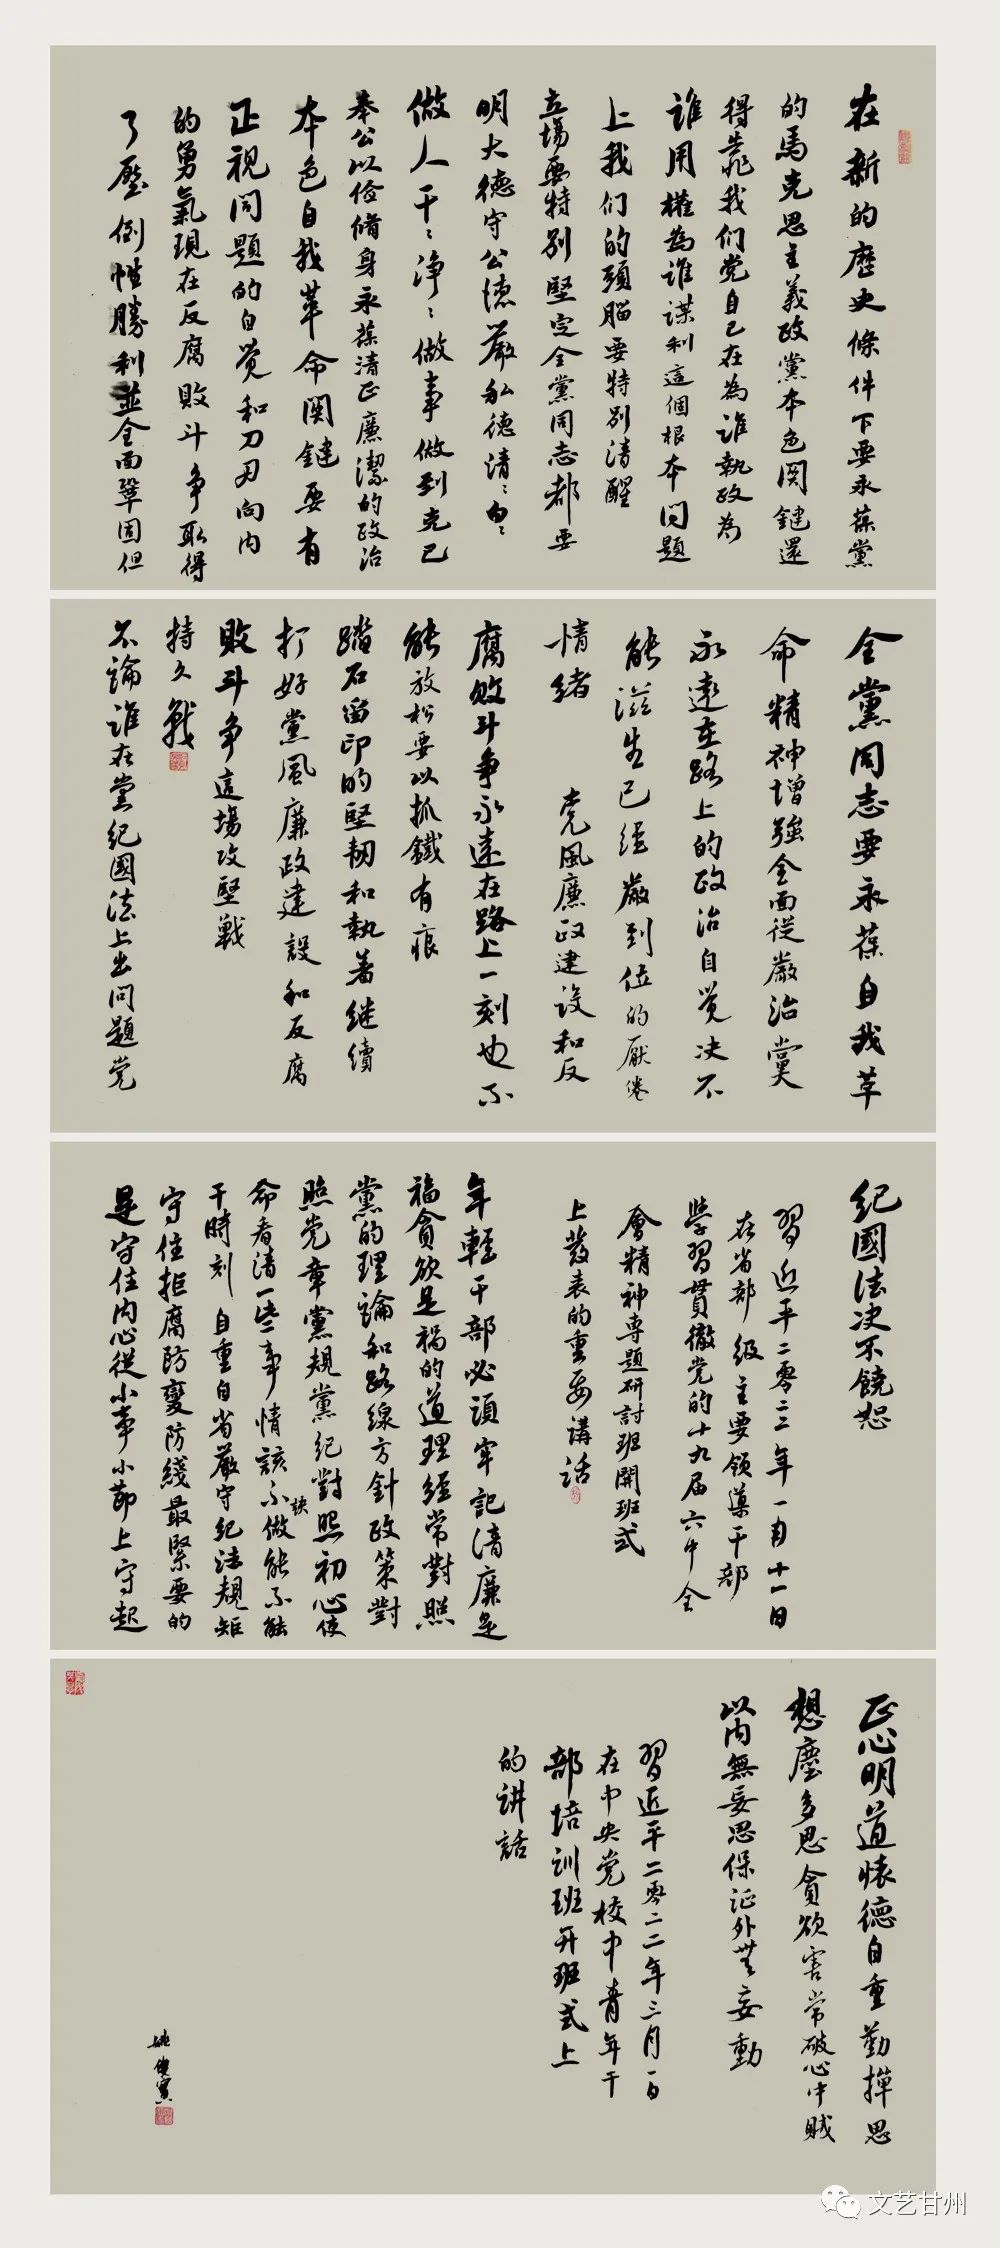 在新的歷史條件下要永葆黨
的馬克思主義政黨本色関鍵還
得靠我们党自己在為谁執政為
谁用權為谁謀利這個根本问題
上我们的頭腦要特别清醒
立場要特别堅定全黨同志都要
明大德守公德嚴私德清々白々
做人干々净々做事做到克己
奉公以俭脩身永葆清正廉潔的政治
本色自我革命関鍵要有
正視问题的自觉和刀刃向内
的勇氣現在反腐敗斗争取得
了壓倒性勝利並全面鞏固但
全黨同志要永葆自我革
命精神增強全面從嚴治黨
永遠在路上的政治自觉决不
能滋生已經嚴到位的厭倦
情绪 党風廉政建设和反
腐敗斗争永遠在路上一刻也不
能放松要以抓鐵有痕
踏石留印的堅韧和執著继續
打好黨風廉政建設和反腐
敗斗争這場攻堅戰
持久戰
不論谁在党纪國法上出问題党
纪國法决不饒恕
習近平二零二二年一月十一日
在省部级主要领導干部
學習貫徹党的十九届六中全
會精神專題研討班開班式
上發表的重要講话
年輕干部必須牢記清廉是
福貪欲是禍的道理經常對照
黨的理論和路線方針政策對
照党章黨規黨纪對照初心使
命看清一些事情該不該做能不能
干時刻自重自省嚴守纪法規矩
守住拒腐防變防綫最緊要的
是守住内心從小事小節上守起
正心明道懷德自重勤掸思
想塵多思貪欲害常破心中賊
以内無妄思保证外無妄動
習近平二零二二年三月一日
在中央党校中青年干
部培训班开班式上
的讲話
文艺甘州